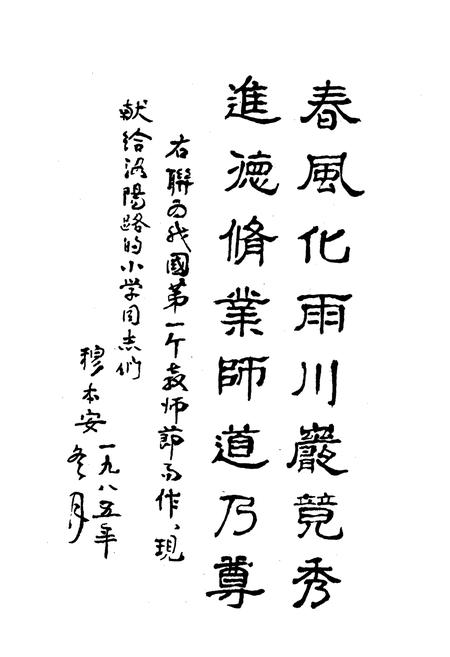 春風化雨川巖競秀
進德脩業師道乃尊
右聯為我國第一个教师節而作、現
献给洛陽路的小学同志们
穆本安
一九八五年
冬月